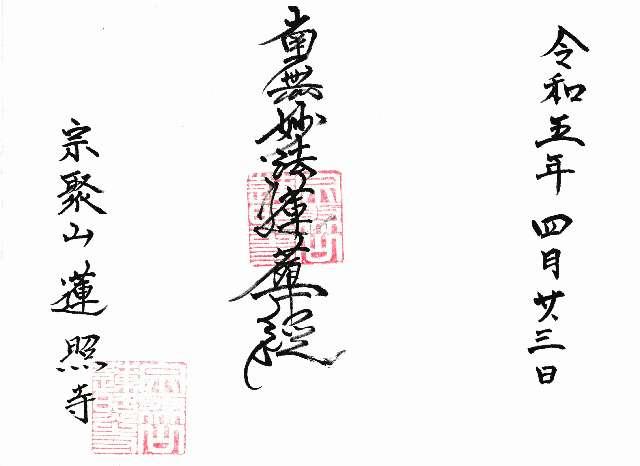 令和五年 四月廿三日
南無妙法蓮華經
宗聚山 蓮照寺